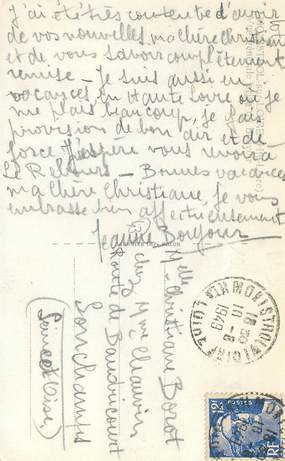 J'ai été très contente d'avoir
de vos nouvelles, ma chère Christiane
et de vous savoir complètement
remise - Je suis aussi en
vacances en Haute Loire où je
me plais beaucoup, je fais
provision de bon air et de
force J'espère vous revoir à
Le Retour - Bonnes vacances
ma chère Christiane, je vous
embrasse bien affectueusement
Jeanne Boyour
Mlle
Christiane Borot
chez Mme Chauvin
Route de Baudricourt
Sonchamps
(Seine et Oise)
MONISTROL
LOIRE
1949
RF